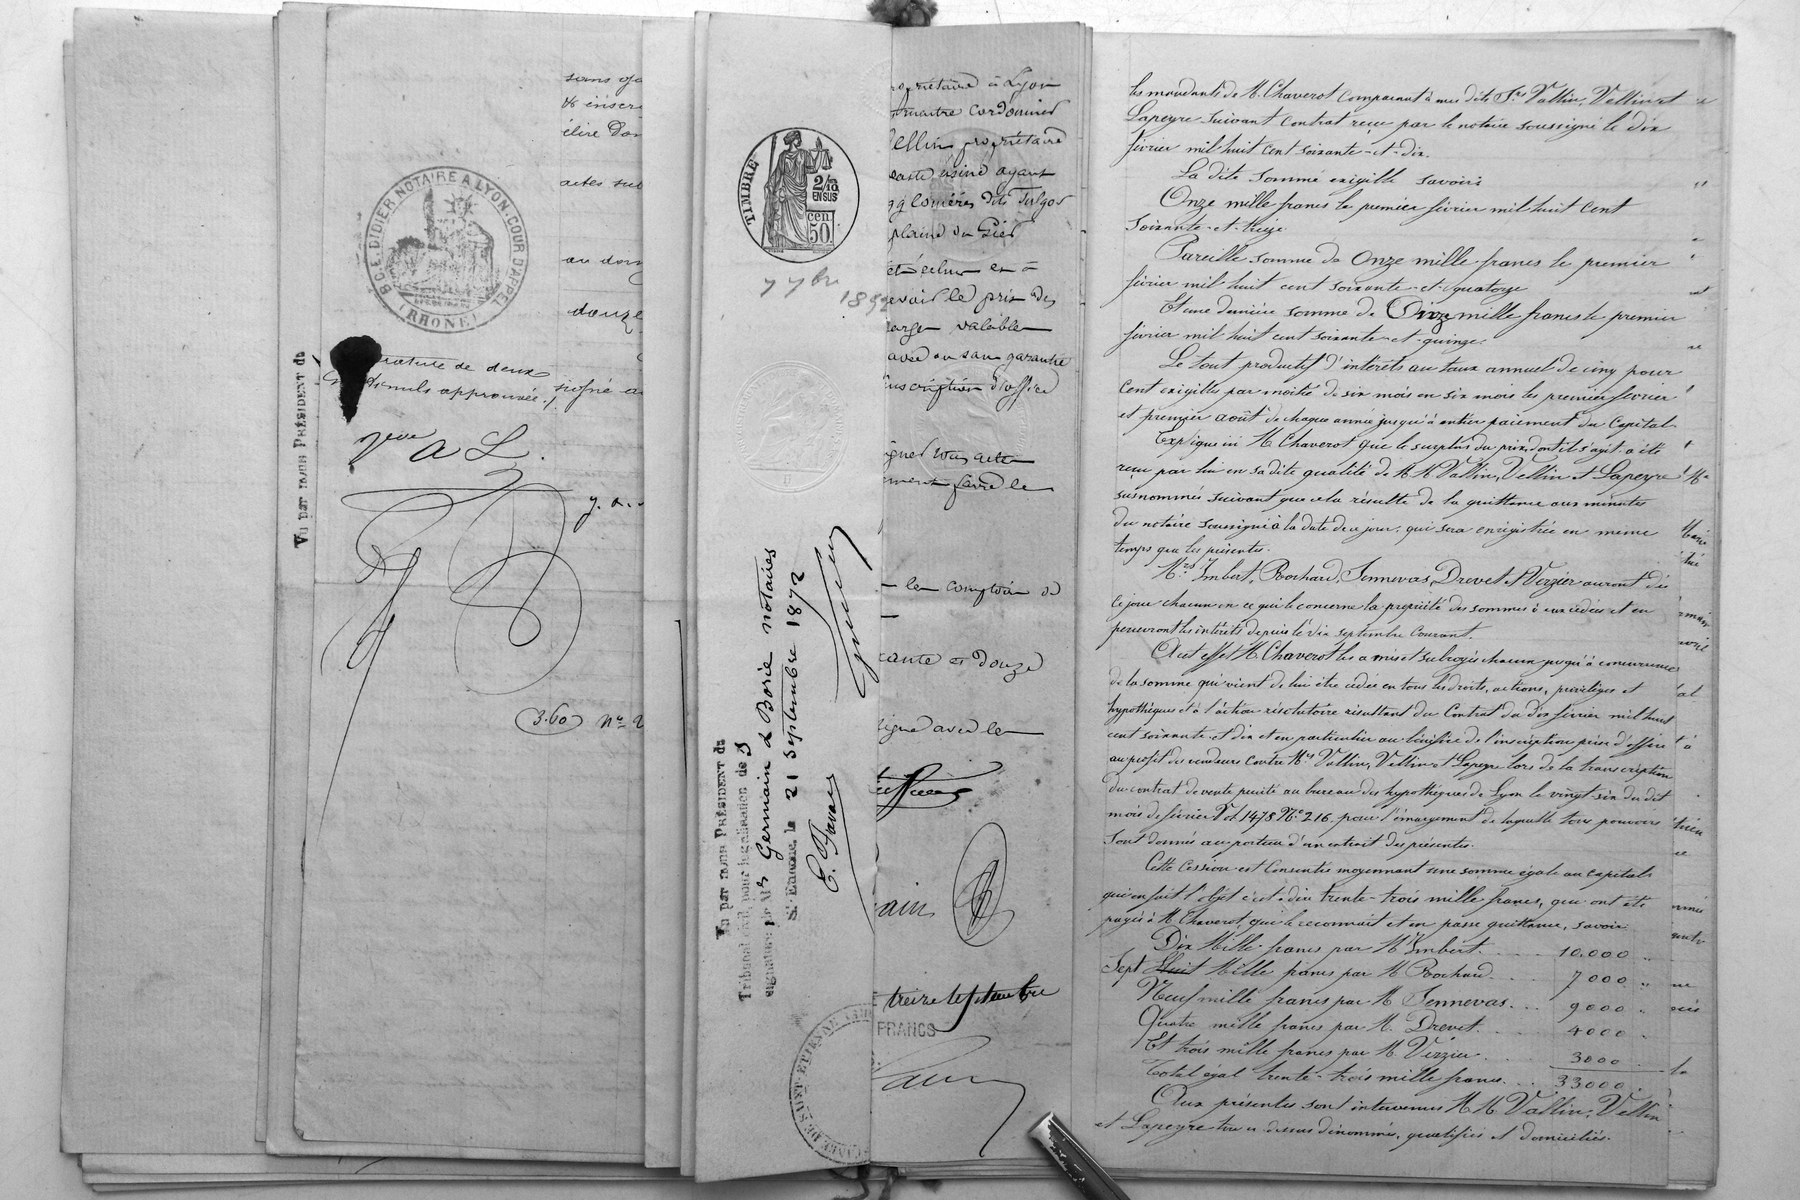 sans
inscri
élire Dom
actes sub
au dom
douze
B.C.E. DIDIER NOTAIRE A LYON. COUR D'APPEL
(RHONE)
rature de deux
nuls approuvée ./. signé
A L.
3.60 No
Vu par nous PRÉSIDENT du
TIMBRE
2/10 EN SUS
cen 50
7 7bre
Vu par nous PRÉSIDENT du
Tribunal civil, pour légalisation de
signature par Mrs Germain & Borié notaires
St Etienne, le 21 Septembre 1872
propriétaire à Lyon
maitre cordonnier
Vellin propriétaire
usine ayant
agglomérés dits
plaine du Giers
recevoir le prix des
valable
avec ou sans garantie
inscription d'office
le comptoir de
soixante et Douze
signé avec le
treize septembre
FRANCS
DE SAINT-ETIENNE
les mandants de M. Chaverot comparant à mes dits Srs Vallin, Vellin et
Lapeyre suivant contrat reçu par le notaire soussigné le dix
février mil huit cent soixante-et-dix.
La dite somme exigible savoir:
Onze mille francs le premier février mil huit cent
soixante-et-treize
Pareille somme de Onze mille francs le premier
février mil huit cent soixante-et-quatorze
Et une dernière somme de Onze mille francs le premier
février mil huit cent soixante-et-quinze.
Le tout productif d'intérêts au taux annuel de cinq pour
cent exigibles par moitié de six mois en six mois les premier février
et premier août de chaque année jusqu'à entier paiement du Capital
Explique ici M. Chaverot que le surplus du prix dont il s'agit a été
reçu par lui en sa dite qualité de MM Vallin, Vellin et Lapeyre
susnommés suivant que cela résulte de la quittance aux minutes
du notaire soussigné à la date de ce jour, qui sera enregistrée en même
temps que les présentes.
Mrs Imbert, Rochard, Jennevas, Drevet & Verzier auront dès
ce jour chacun en ce qui le concerne la propriété des sommes à eux cédées et en
percevront les intérêts depuis le dix septembre Courant.
A cet effet M. Chaverot les a mis et subrogés chacun jusqu'à concurrence
de la somme qui vient de lui être cédée en tous les droits, actions, privilèges et
hypothèques et à l'action résolutoire résultant du Contrat du dix février mil huit
cent soixante et dix et en particulier au bénéfice de l'inscription prise d'office
au profit des vendeurs contre Mrs Vallin, Vellin et Lapeyre lors de la transcription
du contrat de vente précité au bureau des hypothèques de Lyon le vingt-six du dit
mois de février Vol 1478 No 216, pour l'émargement de laquelle tous pouvoirs
sont donnés au porteur d'un extrait des présentes.
Cette Cession est Consentie moyennant une somme égale au capital
qui en fait l'objet c'est à dire trente-trois mille francs, qui ont été
payés à M. Chaverot, qui le reconnait et en passe quittance, savoir
Dix Mille francs par M. Imbert. 10.000 "
Sept Huit Mille francs par M Rochard. 7000 "
Neuf mille francs par M Jennevas. 9000 "
Quatre mille francs par M. Drevet. 4000
Et trois mille francs par M. Verzier. 3000
Total égal trente-trois mille francs. 33000.
Aux présentes sont intervenus MM Vallin, Vellin
et Lapeyre tous ci dessus dénommés, qualifiés et domiciliés.